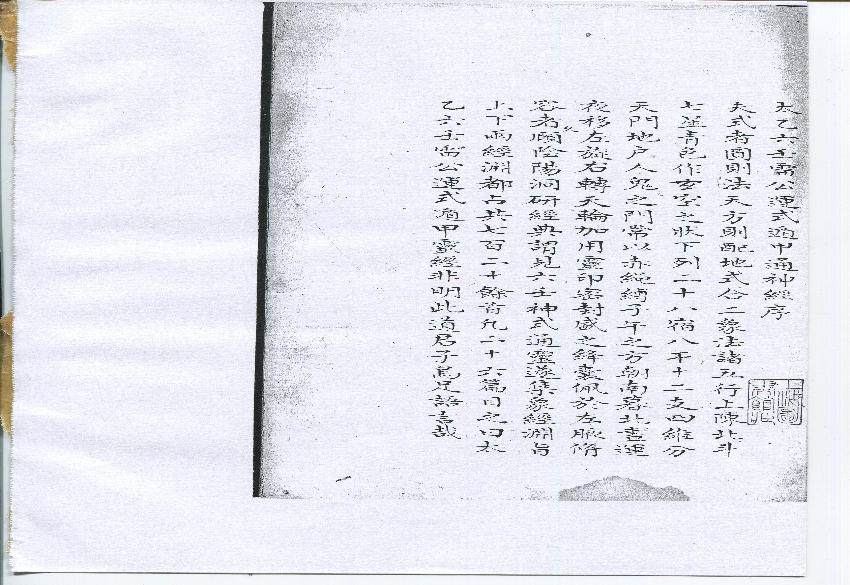 太乙六壬雷公運式遁甲通神經序
夫式者圓則法天方則配地式分二象法諸五行上陳北斗
七星青色作玄室之狀下列二十八宿八干十二支四維分
天門地戶人鬼之門常以赤繩縛子午之方朝南暮北晝運
夜移左旋右轉天輪加用靈印密封盛之絳囊佩於左脇脩
者顧陰陽洞研經典謂見六壬神式通靈遂集象經淵旨
上下兩經淵都占共七百二十餘首凡六十六篇目之曰太
乙六壬雷公運式遁甲靈經非明此道君子焉足語言哉